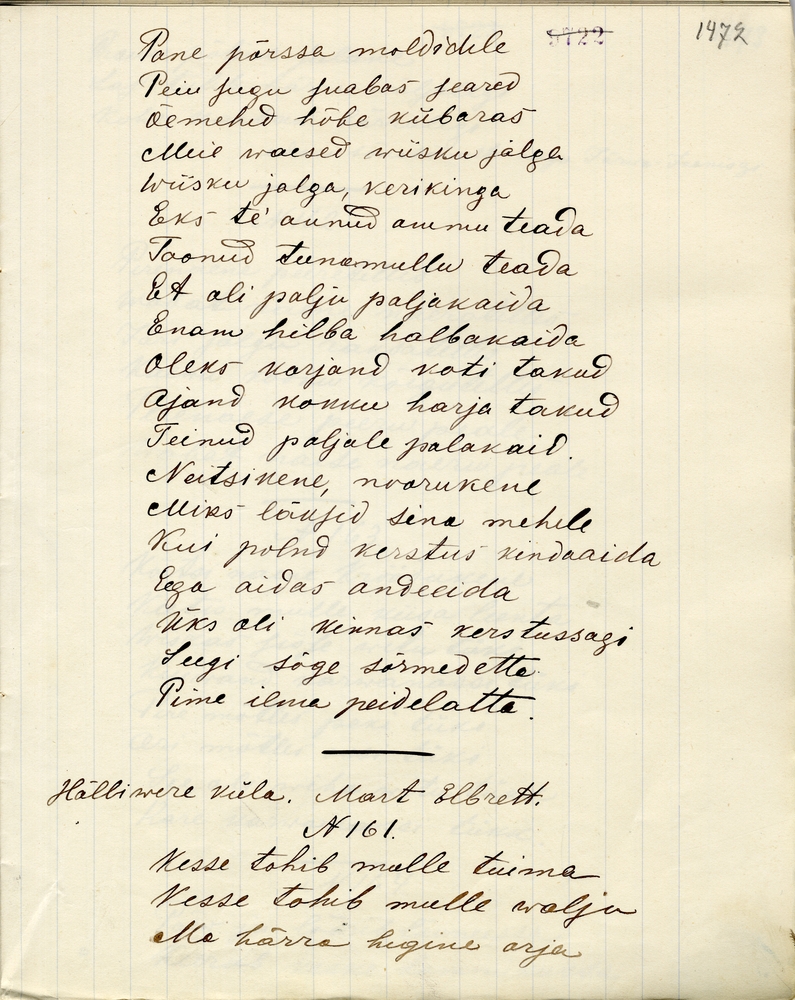 1472
9722
Pane põrssa moldidele
Peiu sugu suabas seared
Öemehed hõbe kübaras
Meie waesed wiisku jalga
Wiisku jalga, kerikinga
Eks te' annud ammu teada
Toonud tunamullu teada
Et oli palju paljakaida
Enam hilba halbakaida
Oleks korjand koti takud
Ajand kokku harja takud
Teinud paljale palakaid.
Neitsikene, noorukene
Miks läksid sina mehele
Kui polnd kerstus kindaaida
Ega aidas andeeida
Üks oli kinnas kerstussagi
Seegi sõge sõrmedetta
Pime ilma peidelatta.
Hälliwere küla. Mart Elbrett.
N 161.
Kesse tohib mulle tuima
Kesse tohib mulle walju
Ma härra higine arja